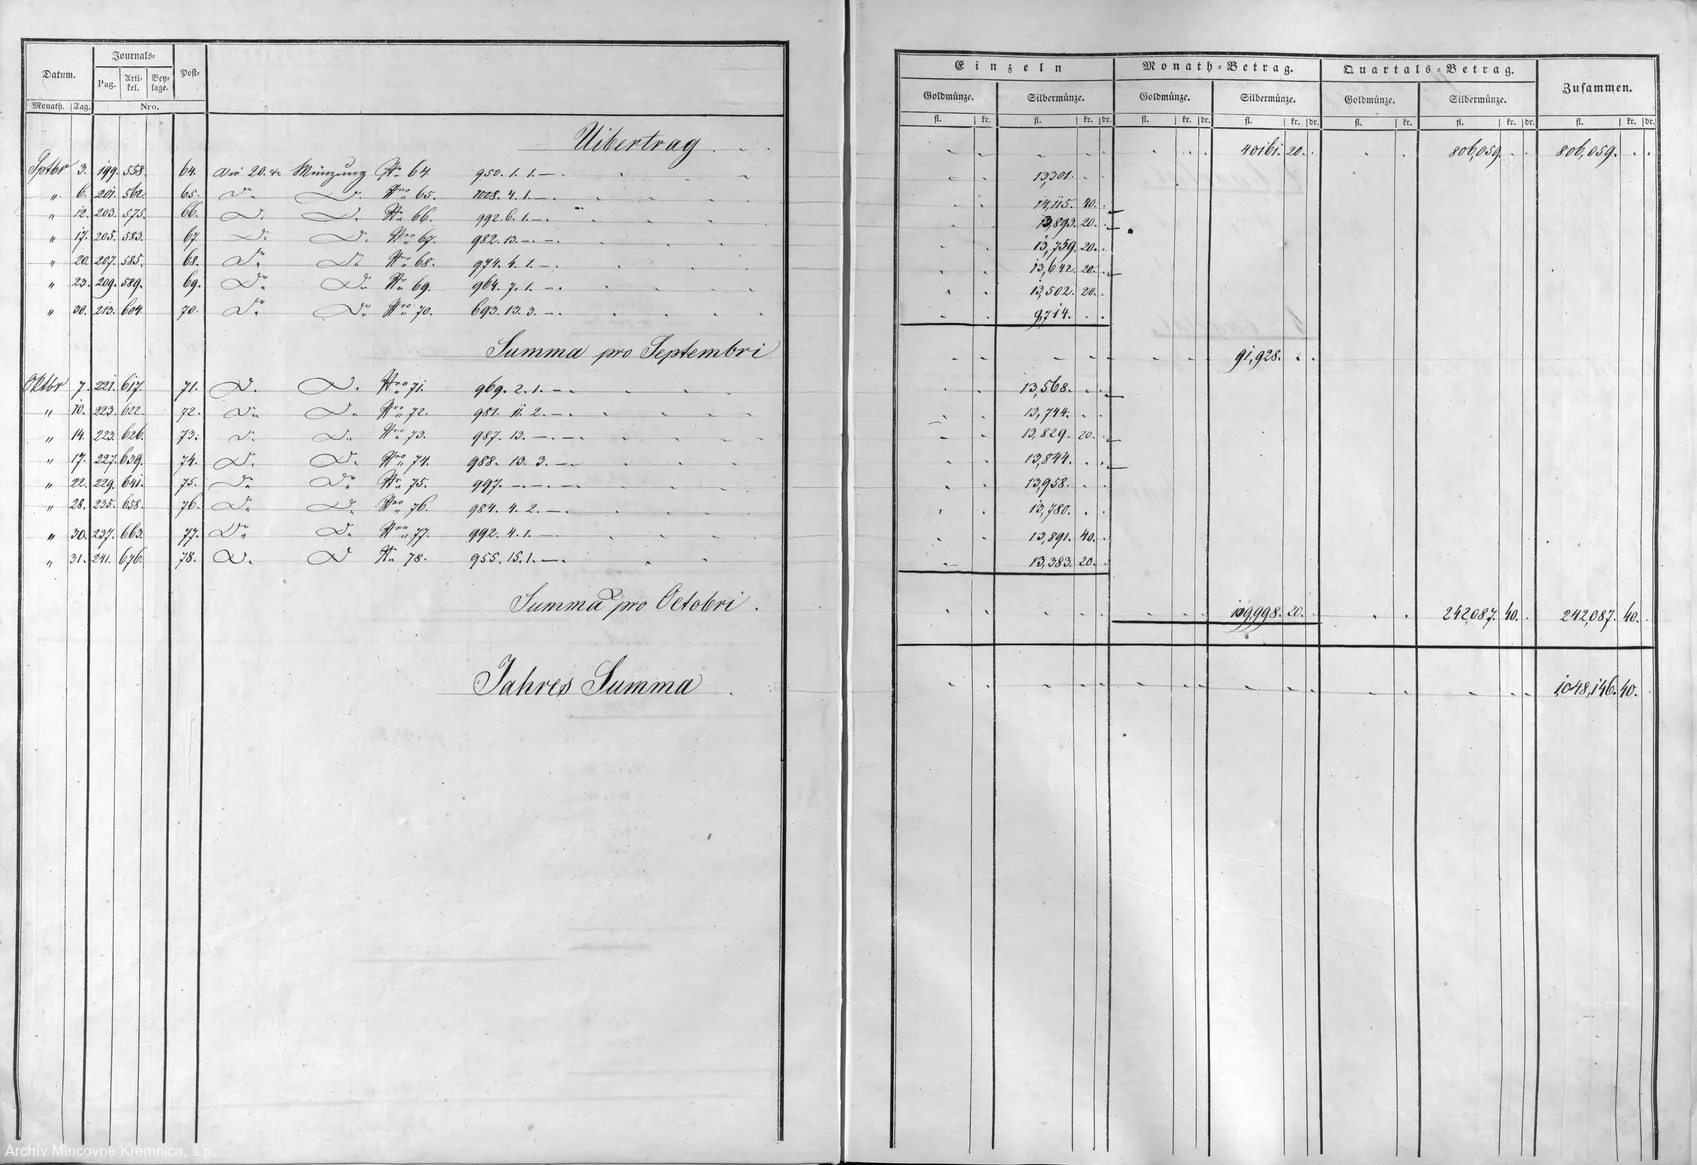 Datum.
Journals-
Post-
Pag.
Arti-
kel.
Bey-
lage.
Monath.
Tag.
Nro.
Einzeln
Monath-Betrag.
Quartals-Betrag.
Zusammen.
Goldmünze.
Silbermünze.
Goldmünze.
Silbermünze.
Goldmünze.
Silbermünze.
fl. kr. fl. kr. dr. fl. kr. dr. fl. kr. dr. fl. kr. fl. kr. dr. fl. kr. dr.
Uibertrag 40161. 20. 806,059. 806,059.
Septbr 3. 199. 558. 64. Münzung Nro 64 950. 1. 1. — 13,301.
" 6. 201. 562. 65. Do Do Nro 65. 1008. 4. 1. 14,115. 40.
" 12. 203. 575. 66. Do Do Nro 66. 992. 6. 1. — 13,893. 20.
" 17. 205. 583. 67. Do Do Nro 67. 982. 13. — — 13,759. 20.
" 20. 207. 585. 68. Do Do Nro 68. 974. 4. 1. — 13,642. 20.
" 23. 209. 589. 69. Do Do Nro 69. 964. 7. 1. — 13,502. 20.
" 30. 213. 604. 70. Do Do Nro 70. 693. 13. 3. — 9,714.
Summa pro Septembri 91,928.
Oktbr 7. 221. 617. 71. Do Do Nro 71. 969. 2. 1. — 13,568.
" 10. 223. 622. 72. Do Do Nro 72. 981. 11. 2. — 13,744.
" 14. 223. 626. 73. Do Do Nro 73. 987. 13. — — 13,829. 20.
" 17. 227. 639. 74. Do Do Nro 74. 988. 13. 3. — 13,844.
" 22. 229. 641. 75. Do Do Nro 75. 997. — — — 13,958.
" 28. 235. 658. 76. Do Do Nro 76. 984. 4. 2. — 13,780.
" 30. 237. 663. 77. Do Do Nro 77. 992. 4. 1. — 13,891. 40.
" 31. 241. 676. 78. Do Do Nro 78. 955. 15. 1. — 13,383. 20.
Summa pro Octobri. 109,998. 20. 242,087. 40. 242,087. 40.
Jahres Summa 1,048,146. 40.
Archív Mincovne Kremnica, š.p.